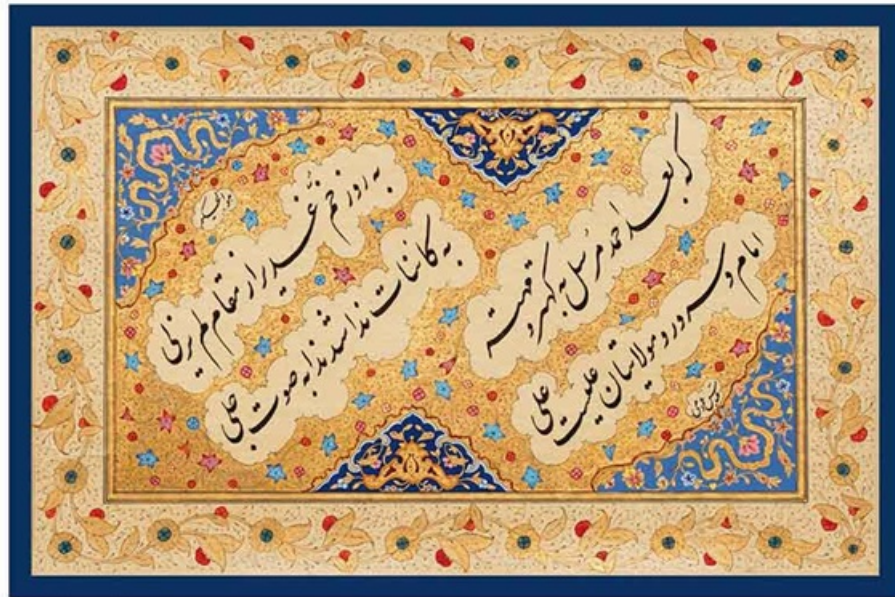 به روز خم غدیر از مقام لم یزلی
به کائنات ندا شد ندا به صوت جلی
که بعد احمد مرسل به کهتر و مهتر
امام و سرور و مولاستان علیست علی